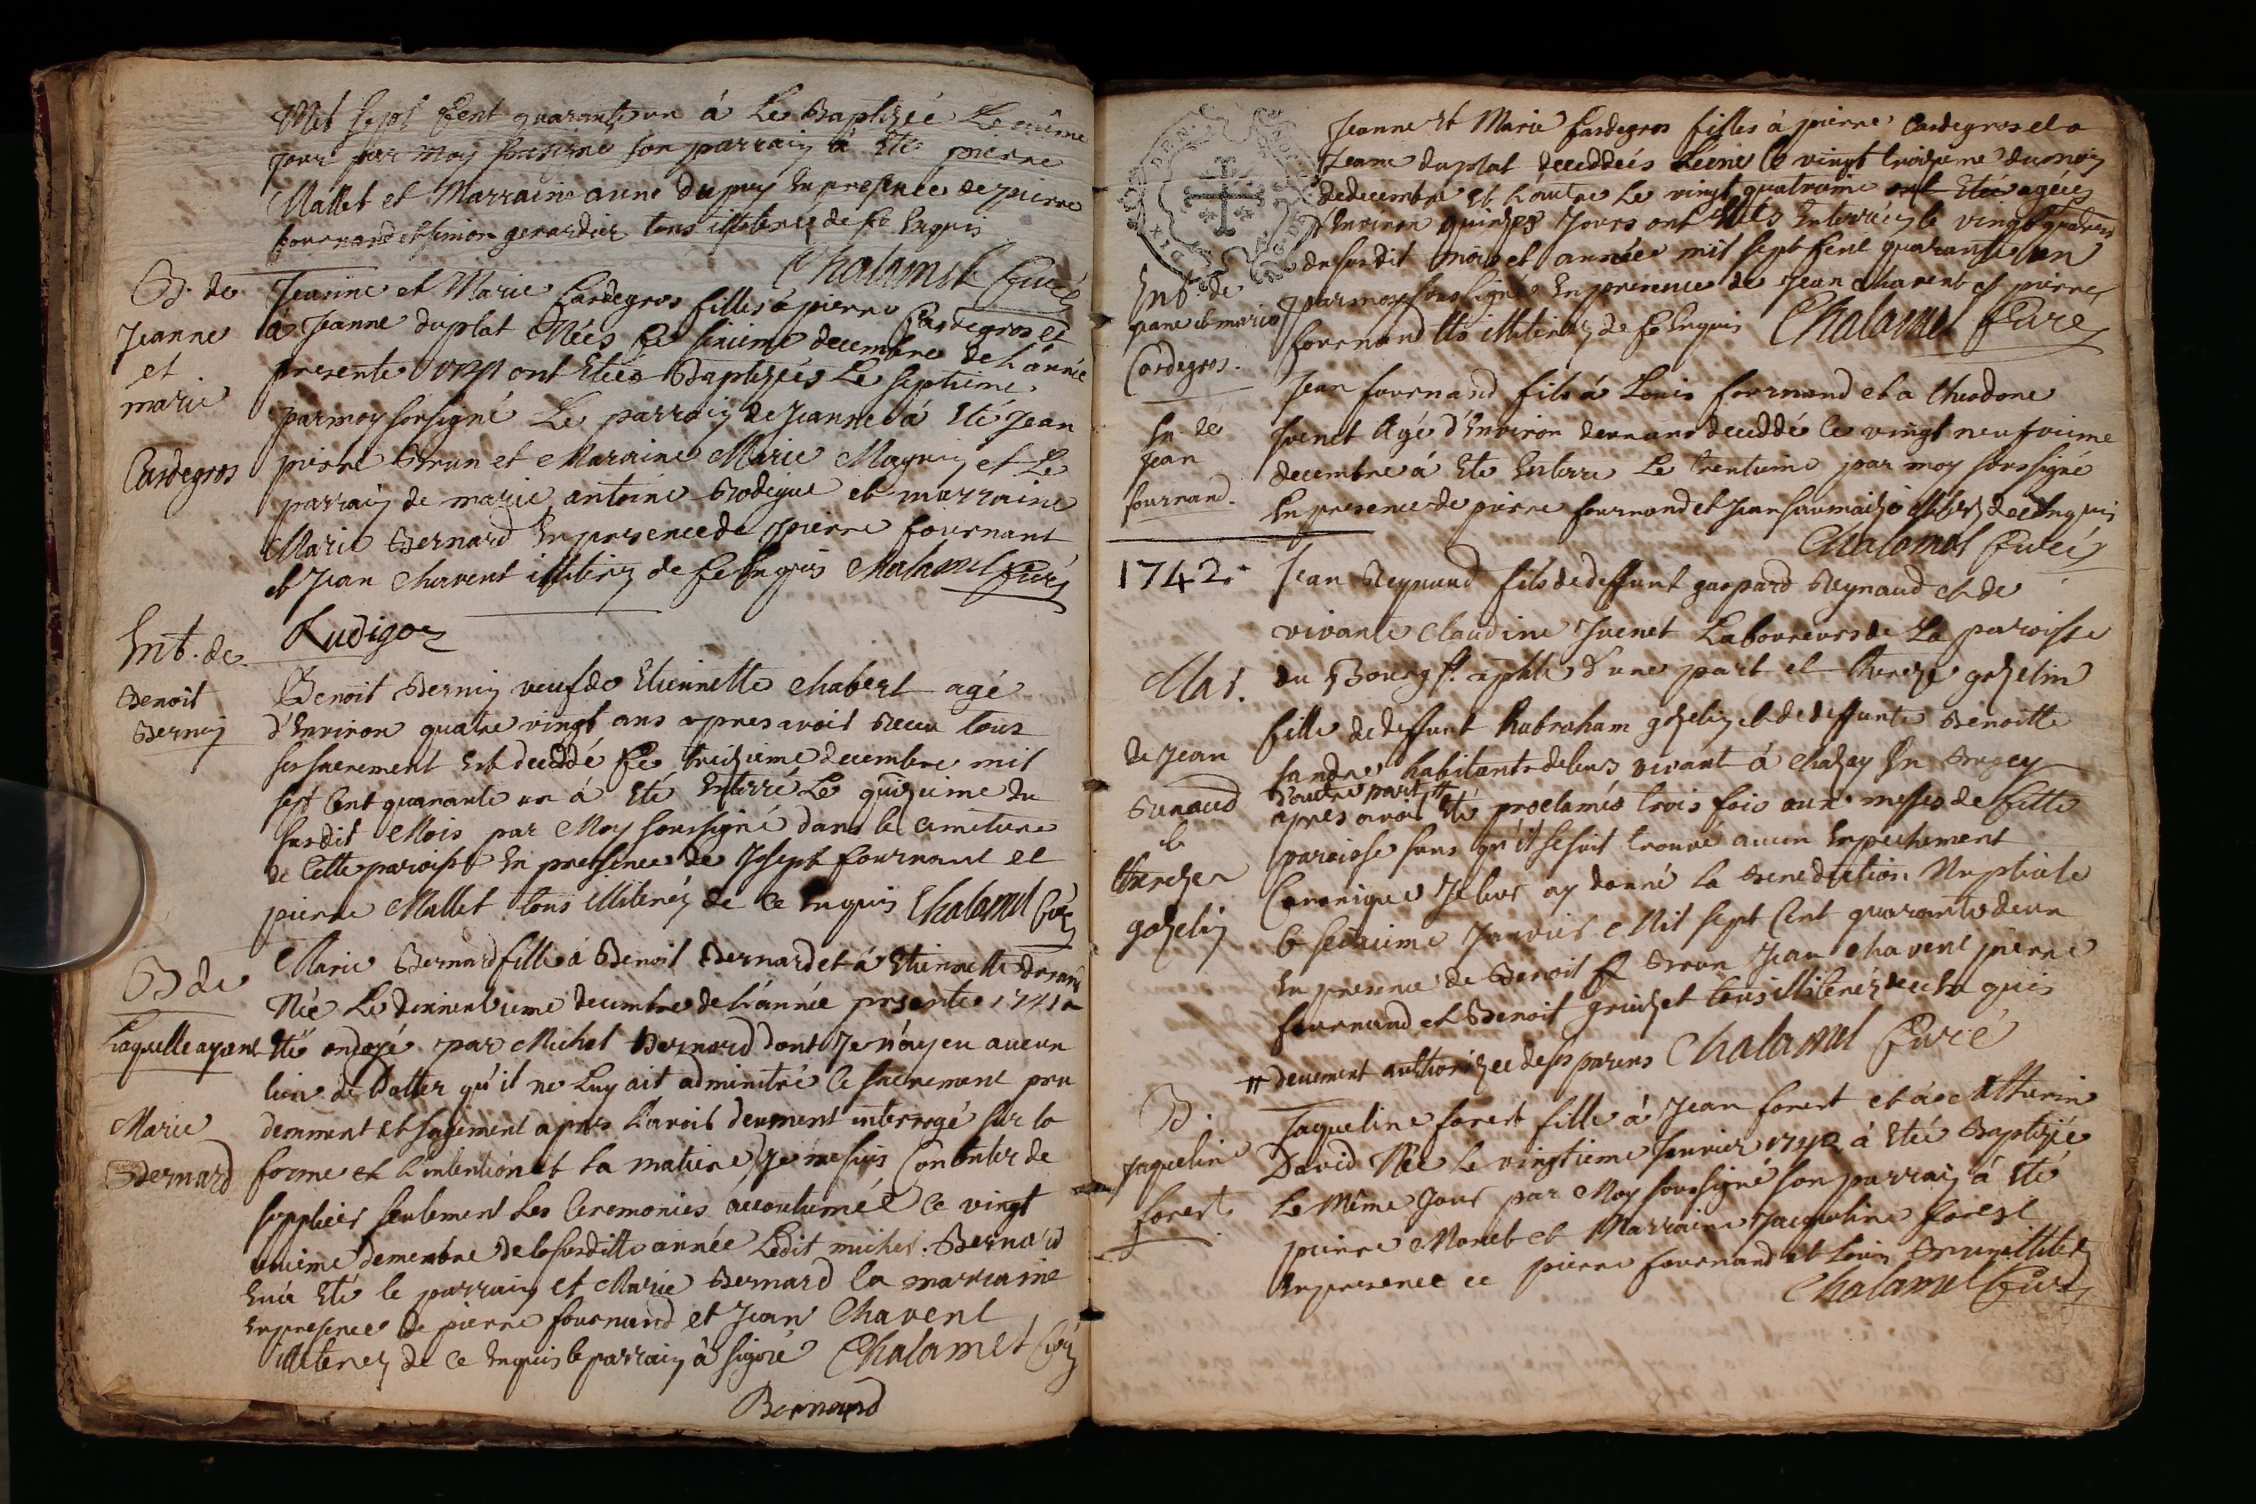 Mil sept Cent quarante un à Eté Baptizéé Le même
jour par moy soussigné son parrain à Eté pierre
Mallet et Marraine anne dupuy En presence de pierre
fournand et simon gerardier tous illiterez de ce Enquis
Chalamel Curé
B. de
Jeanne
et
marie
Cardegros
Jeanne et Marie Cardegros filles à pierre Cardegros et
à Jeanne duplat Néés Ce sixieme decembre de L'année
presente 1741 ont Etéés Baptizéés Le septieme
par moy soussigné Le parrain de Jeanne à Eté Jean
pierre Brun et Maraine Marie Magnin et Le
parrain de marie antoine Rodegue et marraine
Marie Bernard En presence de pierre fournant
et Jean Chavent illiterez de ce Enquis Chalamel Curé
Ent. de
Benoit
Bernin
Benoit Bernin veuf de Etiennette Chabert agé
d'Environ quatre vingt ans apres avoit Receu tous
ses sacrement Est deceddé Le treizieme decembre mil
sept Cent quarante un à Eté Enterré Le quinzieme du
susdit Mois par Moy soussigné dans le Cimetiere
de Cette paroisse En presence de Joseph fournant et
pierre Mallet tous illiterez de ce Enquis Chalamel Curé
B de
Marie
Bernard
Marie Bernard fille à Benoit Bernard et à Etiennette durand
Néé Le dixneuvieme decembre de L'année presente 1741
Laquelle ayant Eté ondoyé par Michel Bernard dont Je n'ay eu aucun
lieu de Datter qu'il ne Luy ait adminitré Le sacrement pru
demment et sagement apres L'avoit deument interrogé sur la
forme et L'intention et la matiere Je me suis Contenter de
supplier seulement Les Ceremonies accoutuméé Ce vingt
unieme decembre de la susditte année Ledit michel Bernard
En à Eté le parrain et Marie Bernard la marraine
En presence de pierre fournand et Jean Chavent
illiterez de ce Enquis le parrain à signé Chalamel Curé
Bernard
Ent. de
Jeane et marie
Cardegros.
Jeanne et Marie Cardegros filles à pierre Cardegros et a
Jeane duplat deceddéés L'une le vingt troizieme du mois
de decembre et L'autre Le vingt quatrieme agéés
d'Environ quinze Jours ont Etés Enterréés le vingt quatrieme
du susdit mois et année mil sept Cent quarante un
par moy soussigné En presence de Jean Chavent et pierre
fournand Illiterez de Ce Enquis Chalamel Curé
En. de
Jean
fournand.
Jean fournand fils à Louis fournand et a theodore
Juenet Agé d'Environ deceddé le vingt neufvieme
decembre à Eté Enterré Le trentieme par moy soussigné
En presence de pierre fournand et Jean de ce Enquis
Chalamel Curé
1742.
Mar.
de Jean
Renaud
et
thereze
gozelin
Jean Reynaud fils de deffunt gaspard Reynaud et de
vivante Claudine Juenet Laboureurs de La paroisse
du Bourg d'une part et thereze gozelin
fille de deffunt habraham gozelin et de deffunte Benoitte
habitants de leurs vivant à Chazey En Bugey
d'autre part #
apres avoir Eté proclamés trois fois aux messes de Cette
paroisse sans qu'il se soit trouvé aucun Empechement
Canonique Je leur ay donné la Benediction Nuptiale
le seizieme Janvier Mil sept Cent quarante deux
En presence de Benoit Brun Jean Chavent pierre
fournand et Benoit tous illiterez de ce Enquis
# deuement authorizee de ses parens Chalamel Curé
B.
Jaqueline
forest
Jaqueline forest fille à Jean forest et à Catherine
David Néé Le vingtieme Janvier 1742 à Eté Baptizéé
Le Même Jour par Moy soussigné son parrain à Eté
pierre Monet et Marraine Jacqueline forest
En presence de pierre fournand et Louis Brun illiterez
Chalamel Curé